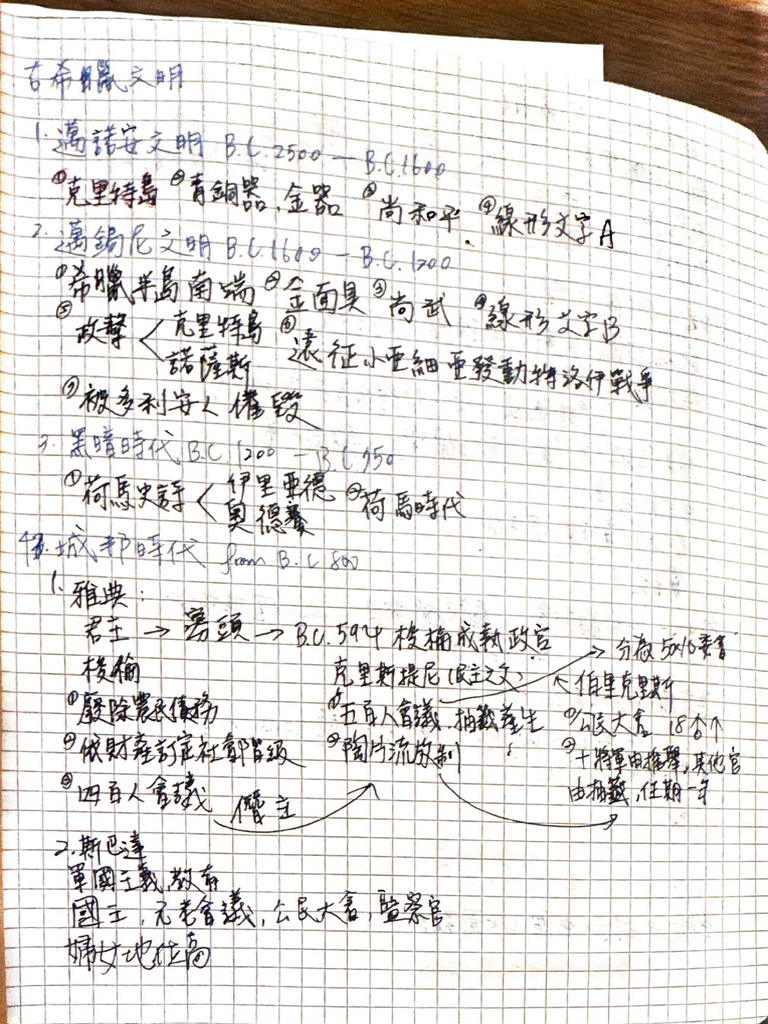 古希臘文明
1. 邁諾安文明 B.C.2500 — B.C.1600
①克里特島 ②青銅器,金器 ③尚和平. ④線形文字A
2. 邁錫尼文明 B.C.1600 — B.C.1200
①希臘半島南端 ②金面具 ③尚武 ④線形文字B
⑤攻擊 < 克里特島 ⑥遠征小亞細亞發動特洛伊戰爭
諾薩斯
⑦被多利安人催毀
3. 黑暗時代 B.C.1200 — B.C.750
①荷馬史詩 < 伊里亞德 ②荷馬時代
奧德賽
城邦時代 from B.C 800
1. 雅典:
君主 → 寡頭 → B.C.594 梭倫成執政官
梭倫
①廢除農民債務
②依財產訂定社會階級
③四百人會議
僭主
克里斯提尼(民主之父)
①五百人會議,抽籤產生
②陶片流放制
分散 50x10委員會
伯里克里斯
①公民大會 18↑个
②十將軍由推舉,其他官
由抽籤,任期一年
2. 斯巴達
軍國主義教育
國王,元老會議,公民大會,監察官
婦女地位高